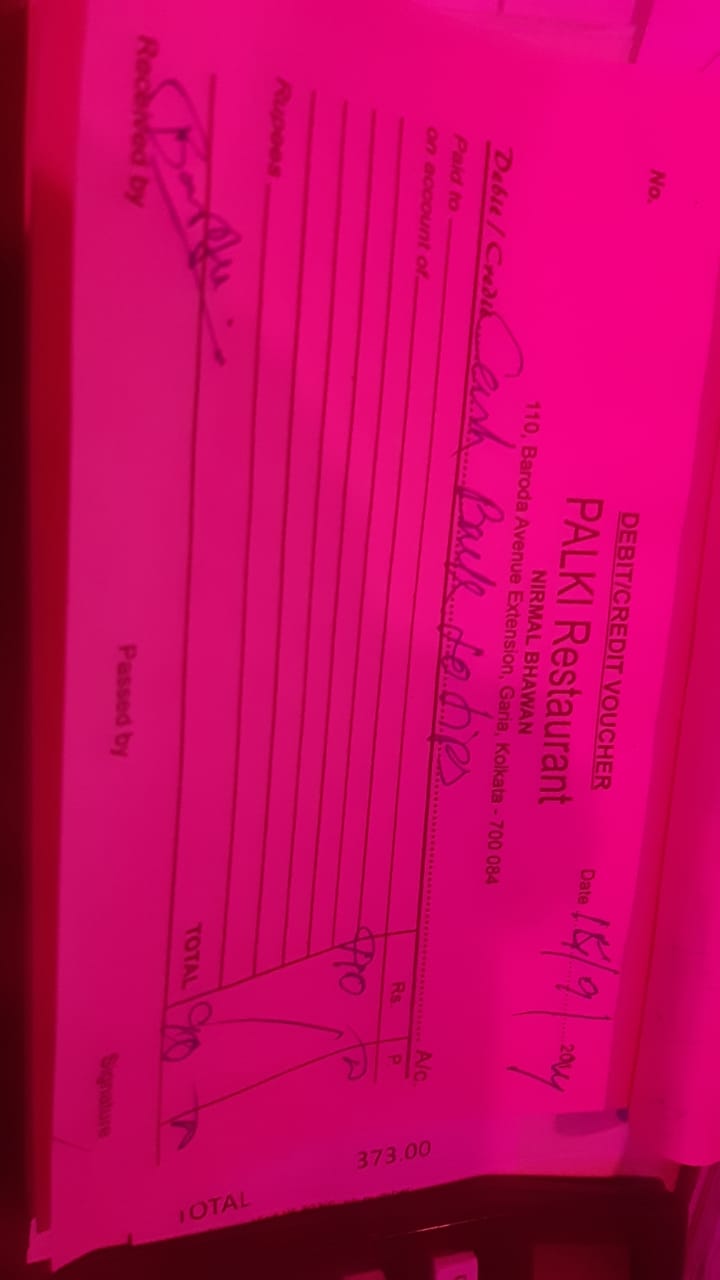 DEBIT/CREDIT VOUCHER
PALKI Restaurant
NIRMAL BHAWAN
110, Baroda Avenue Extension, Garia, Kolkata - 700 084
No.
Date 18/9/ 2024
Debit / Credit Cash Back to tips A/C.
Paid to
on account of
Rs P
Rupees
TOTAL
Received by Passed by Signature
373.00
TOTAL